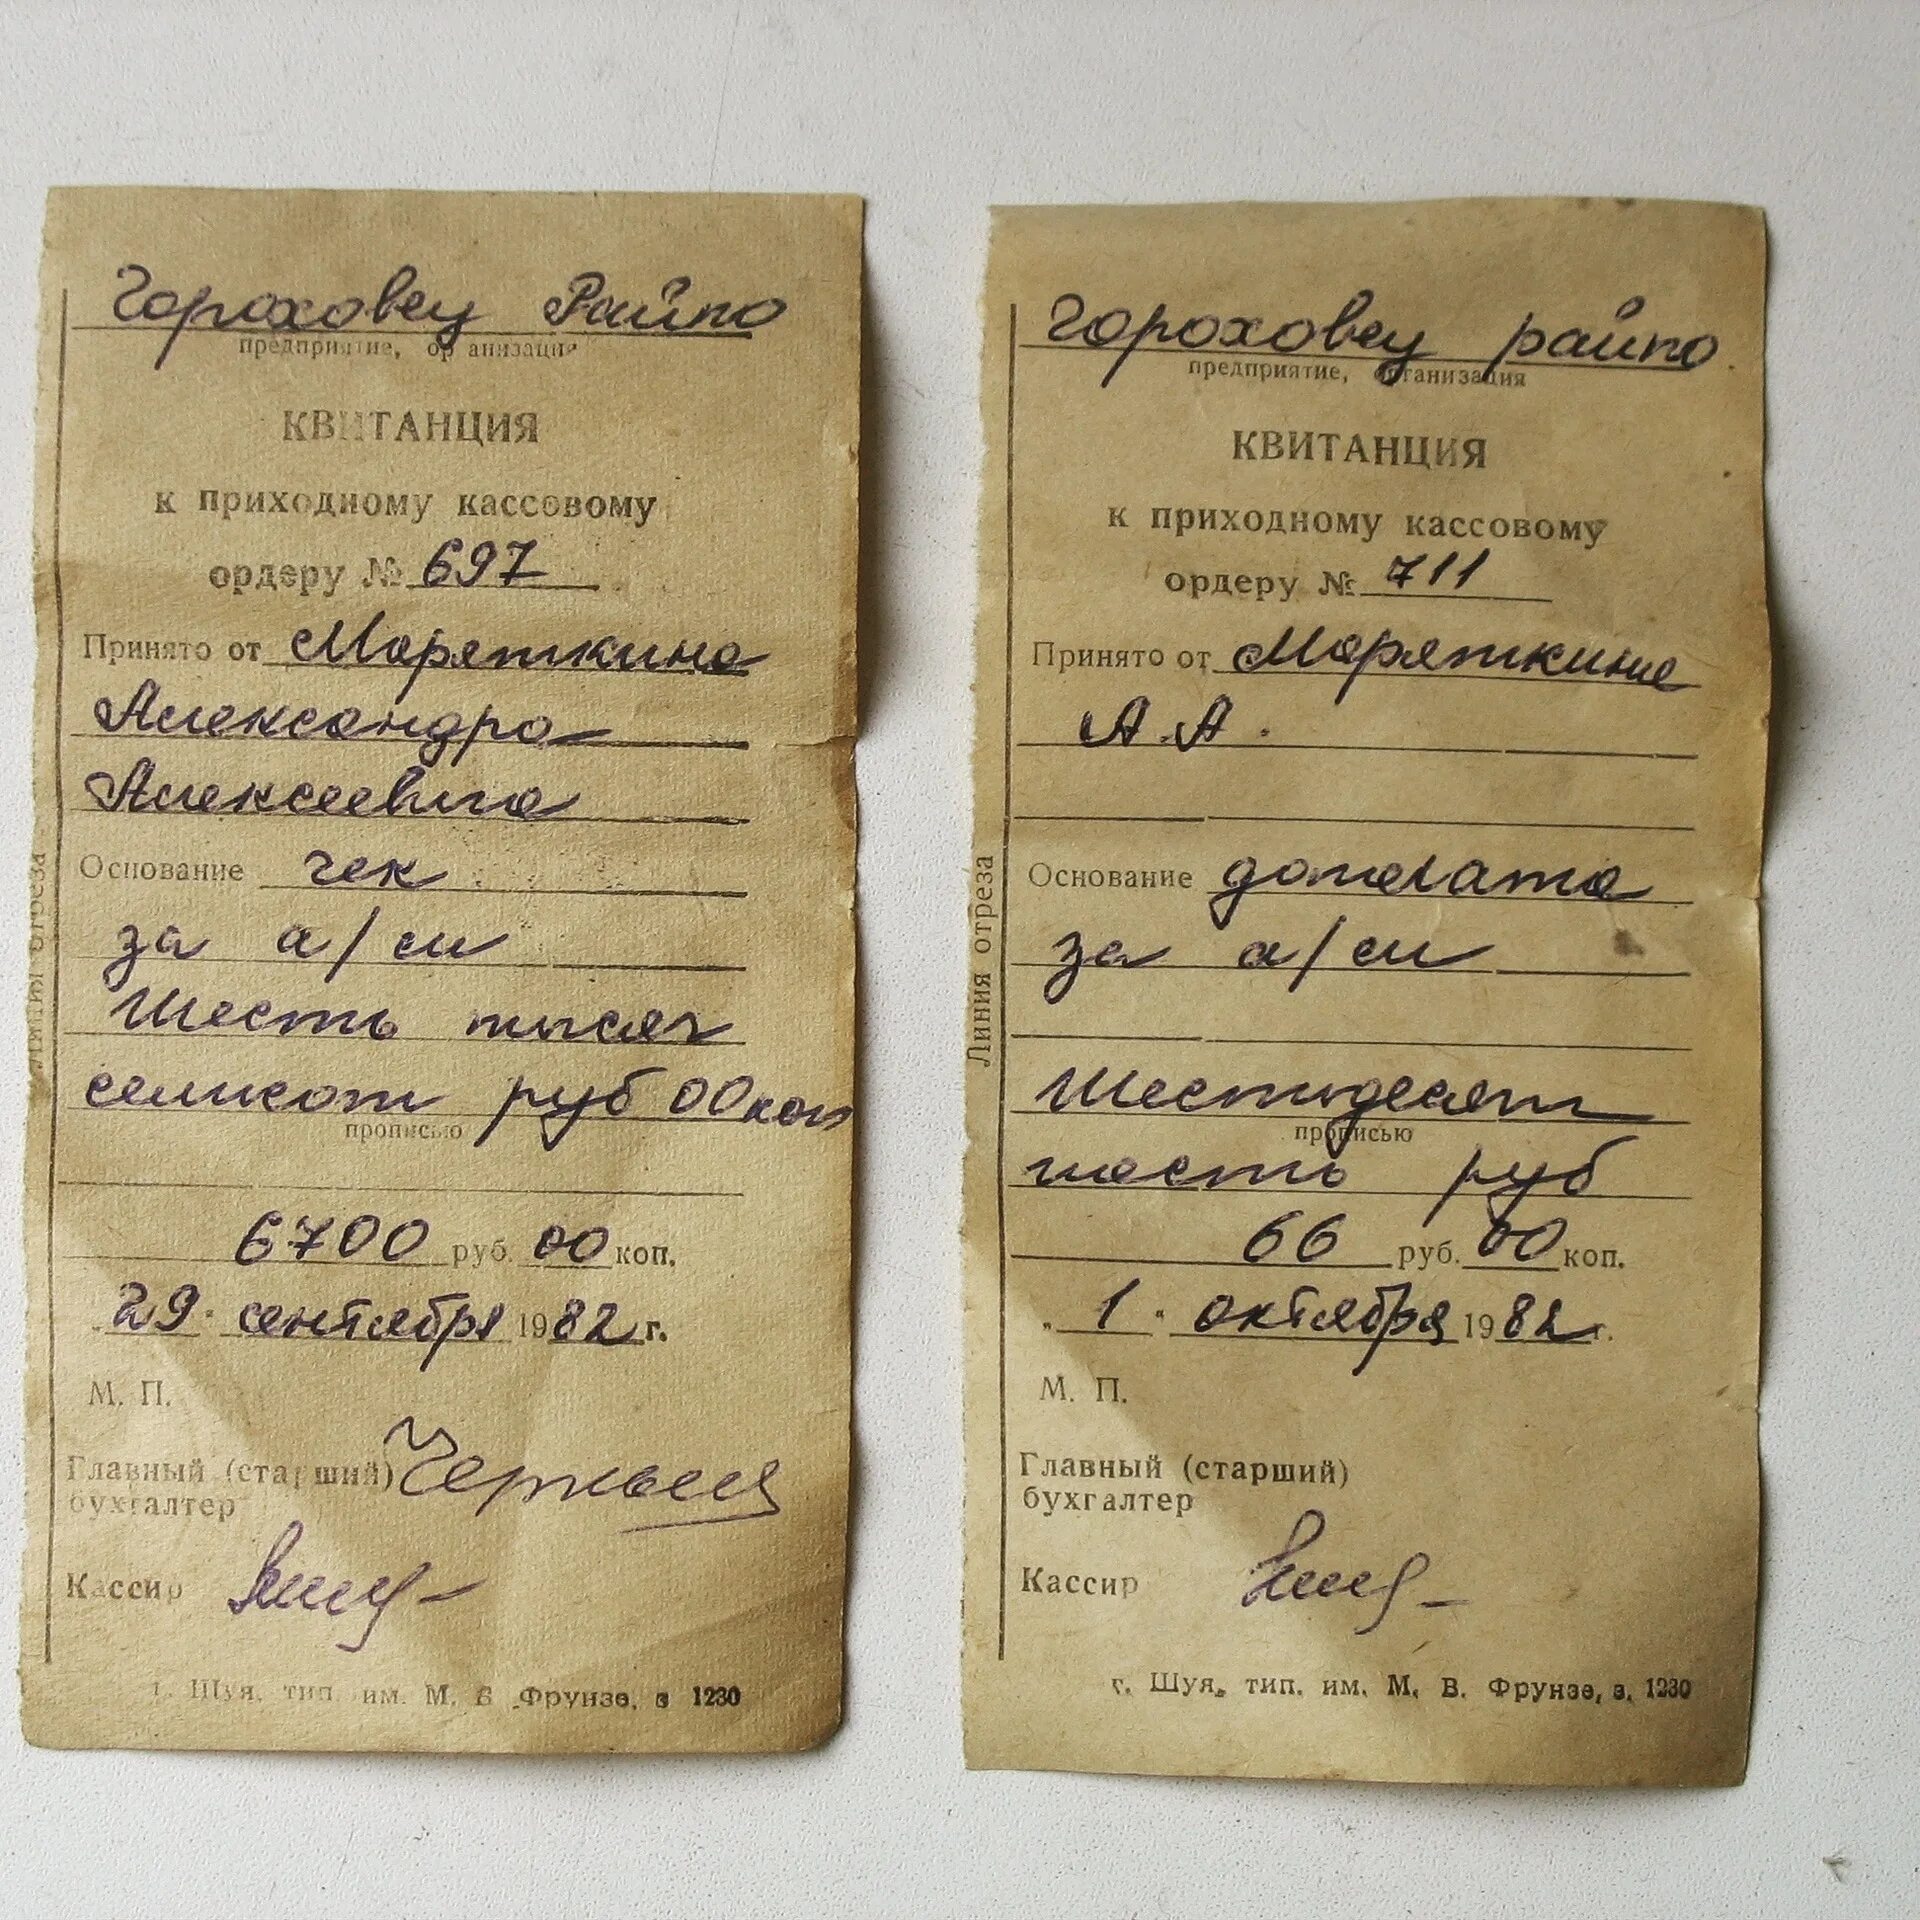 Гороховец Райпо
предприятие, организация
КВИТАНЦИЯ
к приходному кассовому
ордеру № 697
Принято от Моряткина
Александра
Алексеевича
Основание чек
за а/см
Шесть тысяч
семьсот руб 00 коп
прописью
6700 руб. 00 коп.
29 сентября 1982 г.
М. П.
Главный (старший)
бухгалтер
Кассир
Линия отреза
г. Шуя, тип. им. М. В. Фрунзе, з. 1230
Гороховец райпо
предприятие, организация
КВИТАНЦИЯ
к приходному кассовому
ордеру № 711
Принято от Моряткина
А. А.
Основание доплата
за а/см
Шестьдесят
прописью
шесть руб
66 руб. 00 коп.
„ 1 " октября 1982 г.
М. П.
Главный (старший)
бухгалтер
Кассир
Линия отреза
г. Шуя, тип. им. М. В. Фрунзе, з. 1230